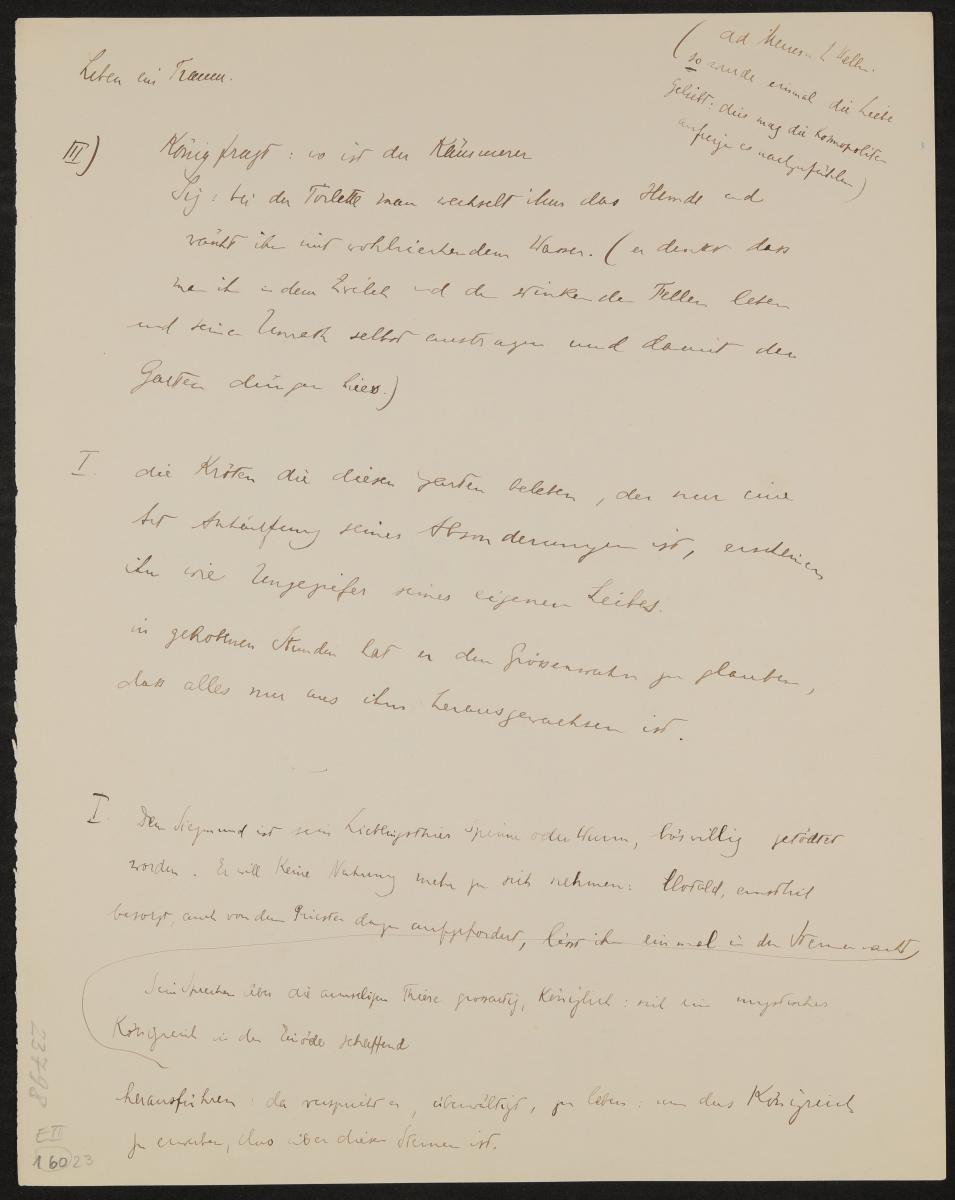 Leben ein Traum.
(ad
so wurde einmal die Liebe
gefühlt: dies mag die Kosmopoliten
es nachzufühlen)
III) König fragt: wo ist der Kämmerer
Sig: bei der Toilette man wechselt ihm das Hemde und
ihn mit wohlriechendem Wasser. (er denkt dass
man ihn in dem Zwilch und den stinkenden Fellen leben
und seinen Unrath selbst austragen und damit den
Garten düngen liess.)
I. die Kröten die diesen Garten beleben, der nur eine
Art Anhäufung seiner Absonderungen ist, erscheinen
ihm wie Ungeziefer seines eigenen Leibes.
in gehobenen Stunden hat er den Grössenwahn zu glauben,
dass alles nur aus ihm herausgewachsen ist.
I. Dem Siegmund ist sein Lieblingsthier Spinne oder Wurm, böswillig getödtet
worden. Er will keine Nahrung mehr zu sich nehmen: ernstlich
besorgt, auch von dem Priester dazu aufgefordert, lässt ihn einmal in der Sternennacht
Sein Sprechen über die armseligen Thiere grossartig, Königlich: sich ein mystisches
Königreich in der Einöde schaffend
herausführen: da verspricht er, überwältigt, zu leben: um das Königreich
zu erwerben, das über diesen Sternen ist.
23798
E III
160 23